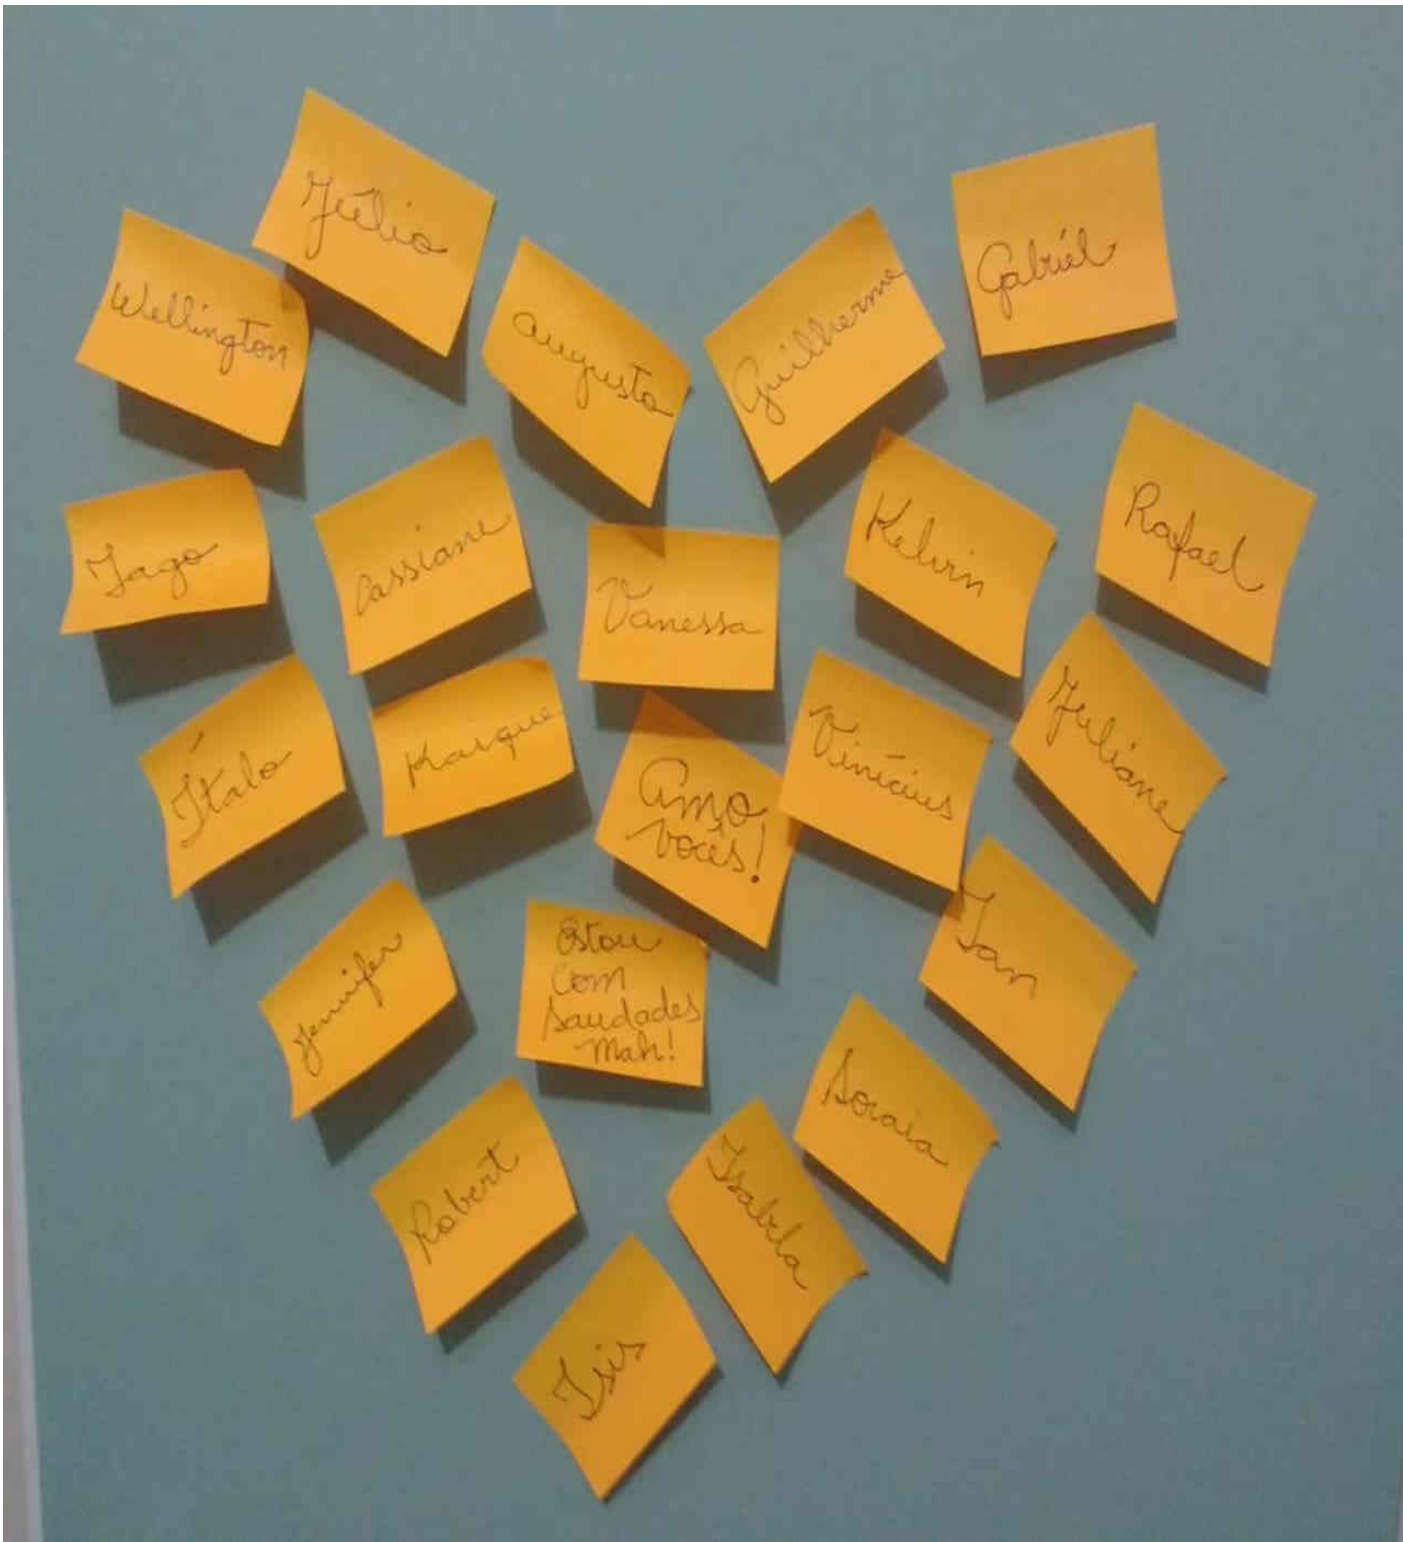 Júlio
Gabriél
Wellington
Augusto
Guilherme
Iago
Cassiane
Vanessa
Kelvin
Rafael
Ítalo
Kaique
Amo
vocês!
Vinícius
Juliane
Jennifer
Estou
com
saudades
mah!
Ian
Soraia
Robert
Isabela
Isis